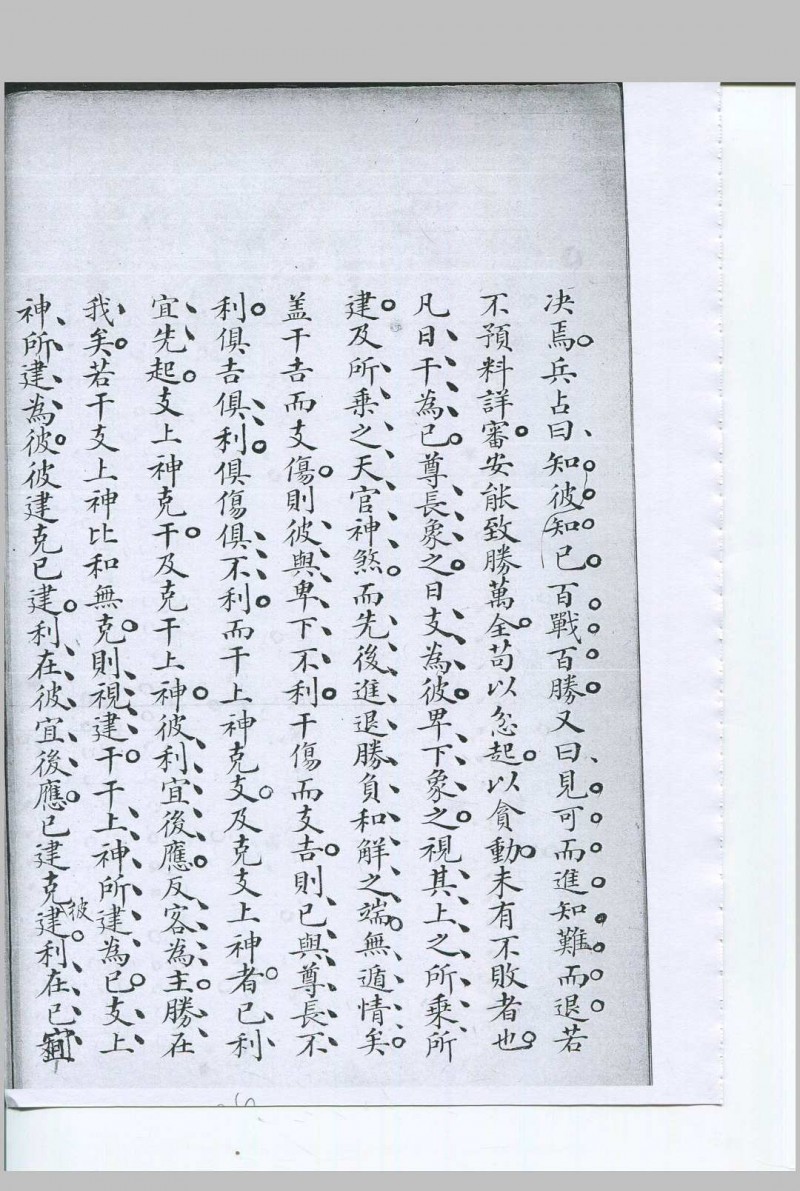 决焉兵占曰知彼知己百戰百勝又曰見可而進知難而退若
不預料詳審安能致勝萬全苟以忿起以貪動未有不敗者也
凡日干為已尊長象之日支為彼卑下象之視其上之所乘所
建及所乗之天官神煞而先後進退勝負和解之端無遁情矣
盖干吉而支傷則彼與卑下不利干傷而支吉則已與尊長不
利俱吉俱利俱傷俱不利而干上神克支及克支上神者已利
宜先起支上神克干及克干上神彼利宜後應反客為主勝在
我矣若干支上神比和無克則視建干干上神所建為已支上
神所建為彼彼建克已建利在彼宜後應已建克彼建利在已宜